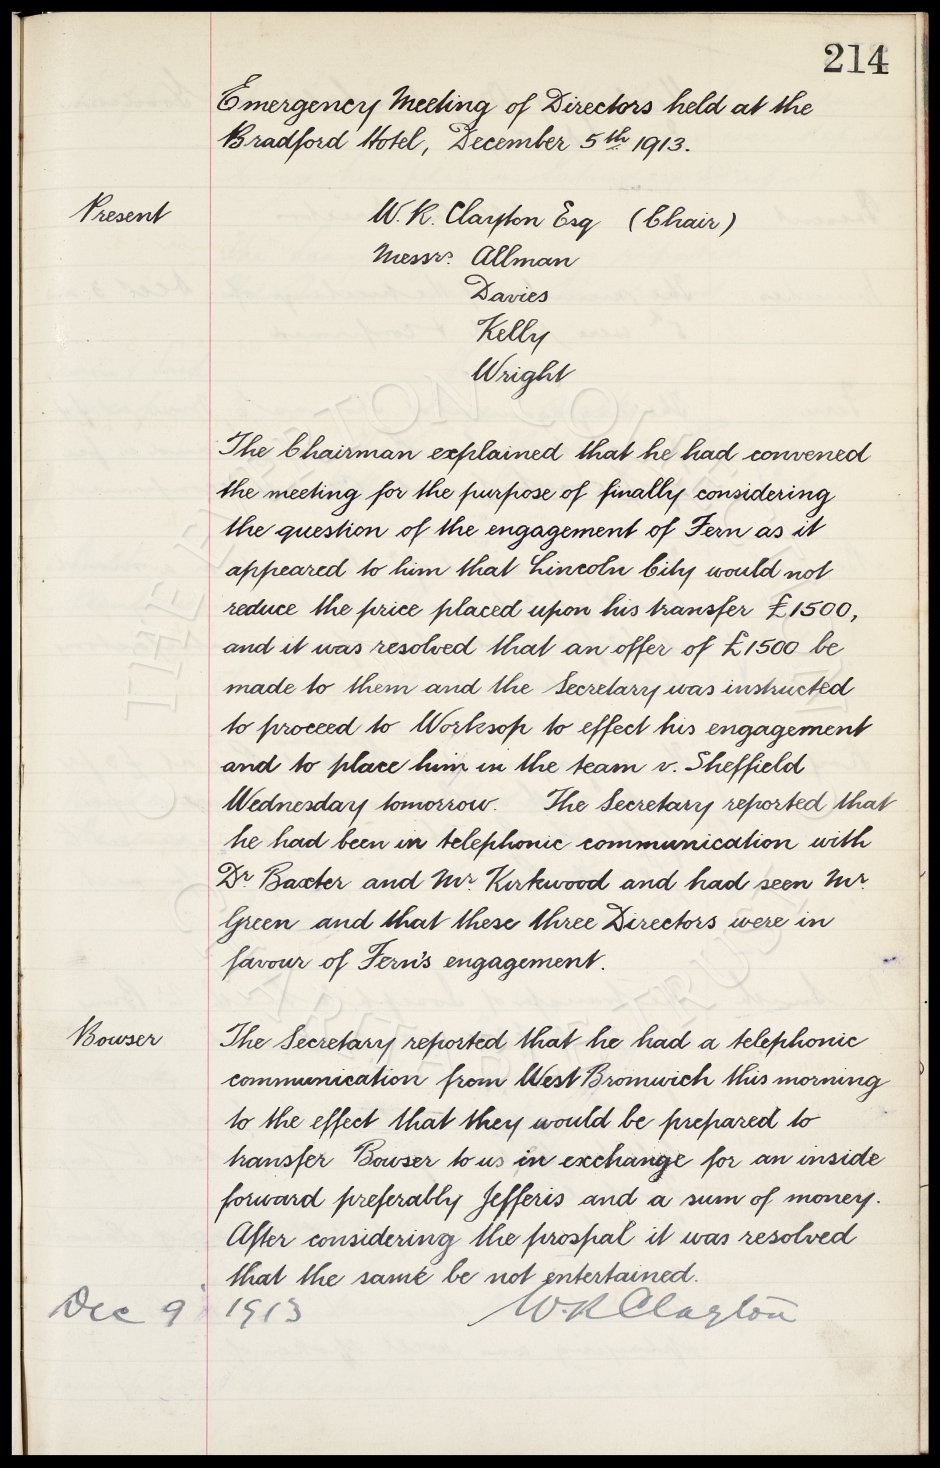 214
Emergency Meeting of Directors held at the
Bradford Hotel, December 5th 1913.
Present
W. R. Clayton Esq (Chair)
Messrs. Allman
Davies
Kelly
Wright
The Chairman explained that he had convened
the meeting for the purpose of finally considering
the question of the engagement of Fern as it
appeared to him that Lincoln City would not
reduce the price placed upon his transfer £1500,
and it was resolved that an offer of £1500 be
made to them and the Secretary was instructed
to proceed to Worksop to effect his engagement
and to place him in the team v. Sheffield
Wednesday tomorrow. The Secretary reported that
he had been in telephonic communication with
Dr Baxter and Mr. Kirkwood and had seen Mr.
Green and that these three Directors were in
favour of Fern's engagement.
Bowser
The Secretary reported that he had a telephonic
communication from West Bromwich this morning
to the effect that they would be prepared to
transfer Bowser to us in exchange for an inside
forward preferably Jefferis and a sum of money.
After considering the prospal it was resolved
that the same be not entertained.
Dec 9 1913 W.R Clayton